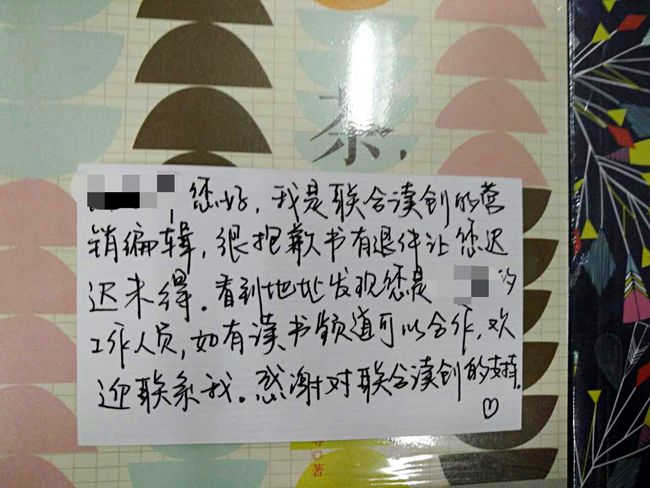 茶，
您好，我是联合读创的营
销编辑，很抱歉书有退件让您迟
迟未得。看到地址发现您是 的
工作人员，如有读书频道可以合作，欢
迎联系我。感谢对联合读创的支持。
♡
著